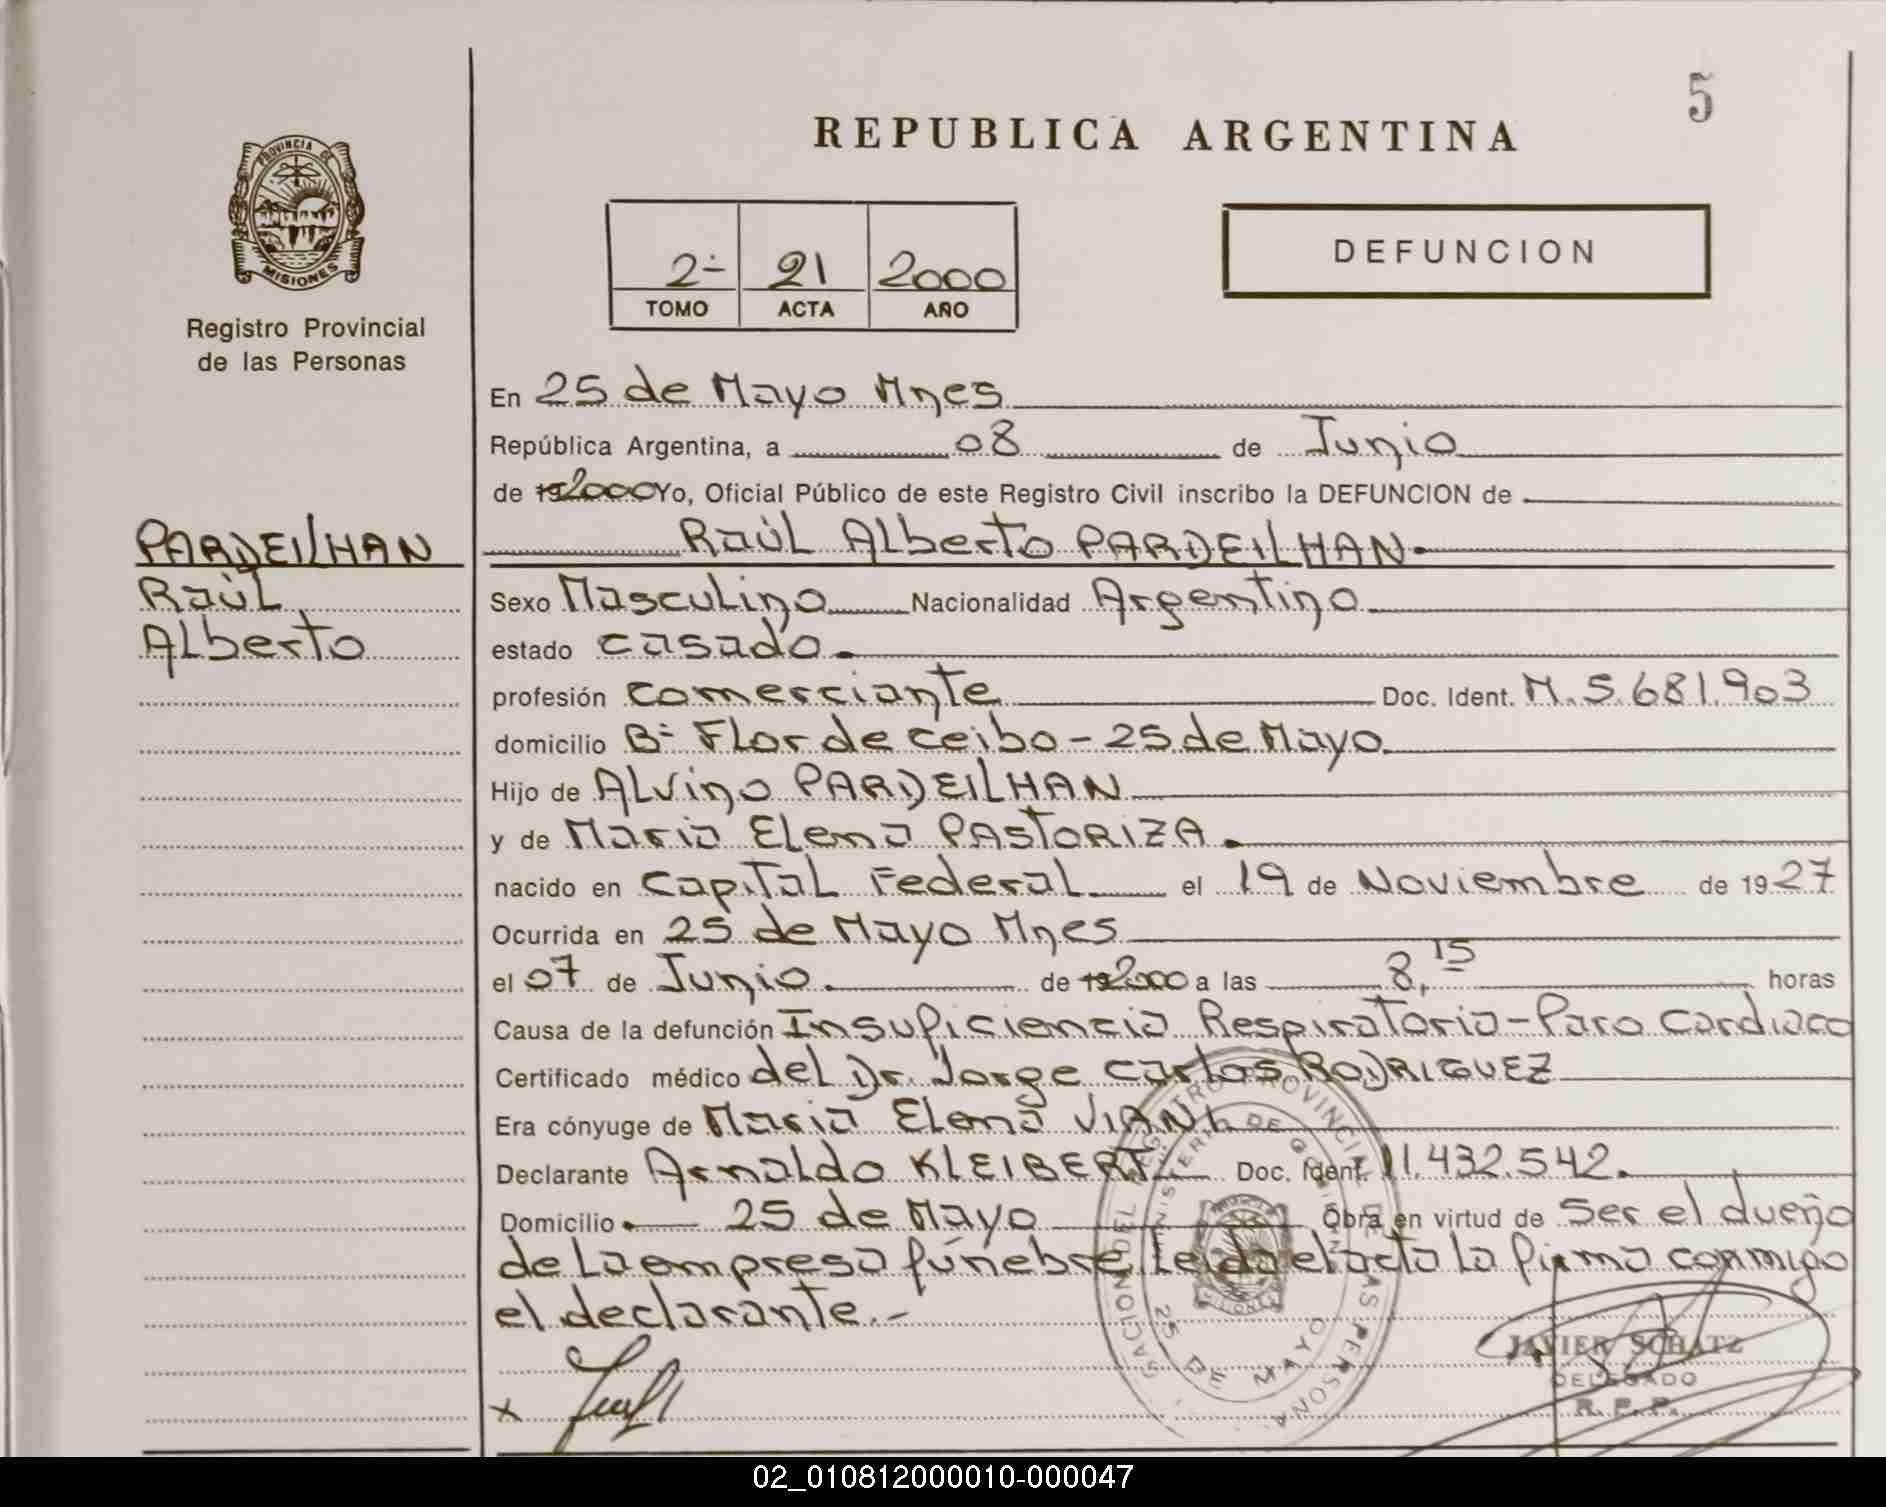 5
REPUBLICA ARGENTINA
PROVINCIA DE MISIONES
Registro Provincial
de las Personas
2- 21 2000
TOMO ACTA AÑO
DEFUNCION
En 25 de Mayo Mnes
República Argentina, a 08 de Junio
de 192000 Yo, Oficial Público de este Registro Civil inscribo la DEFUNCION de
PARDEILHAN
Raúl
Alberto
Raúl Alberto PARDEILHAN.
Sexo Masculino Nacionalidad Argentino
estado casado.
profesión comerciante Doc. Ident. M. 5.681.903
domicilio B- Flor de ceibo - 25 de Mayo
Hijo de Alvino PARDEILHAN
y de Maria Elena PASTORIZA.
nacido en Capital Federal el 19 de Noviembre de 1927
Ocurrida en 25 de Mayo Mnes
el 07 de Junio. de 192000 a las 8,15 horas
Causa de la defunción Insuficiencia Respiratoria - Paro Cardiaco
Certificado médico del Dr. Jorge Carlos RODRIGUEZ
Era cónyuge de Maria Elena VIANI
Declarante Arnaldo KLEIBERT Doc. Ident. 11.432.542.
Domicilio 25 de Mayo Obra en virtud de Ser el dueño
de la empresa fúnebre Leida el acta la firma conmigo
el declarante.-
REGISTRO PROVINCIAL DE LAS PERSONAS
MINISTERIO DE GOBIERNO
25 DE MAYO
MISIONES
x
JAVIER SCHATZ
DELEGADO
R. P. P.
02_010812000010-000047